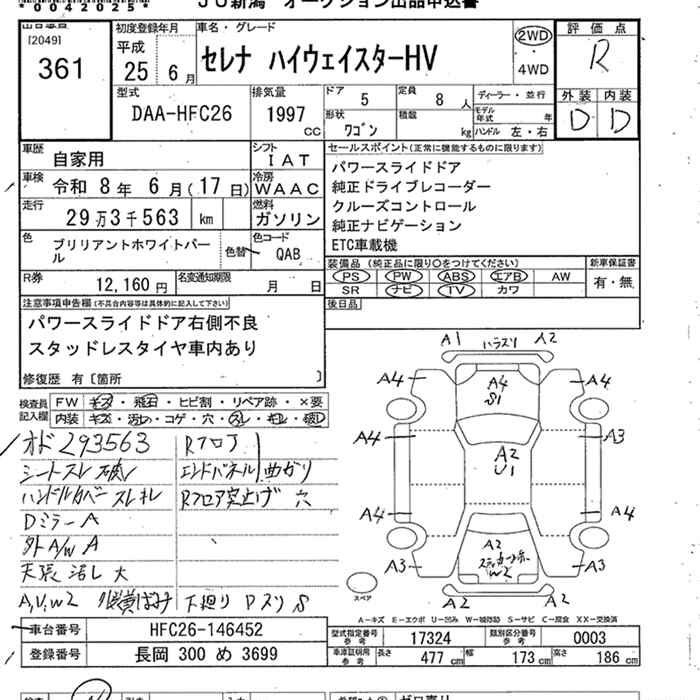 *0042025*
JU新潟 オークション出品申込書
出品番号
[2049]
361
初度登録年月
平成
25年 6月
車名・グレード
セレナ ハイウェイスターHV
2WD
・
4WD
評価点
R
外装 内装
D D
型式
DAA-HFC26
排気量
1997
CC
ドア
5
定員
8人
形状
ワゴン
積載
kg
ディーラー・並行
モデル年式 年
ハンドル 左・右
車歴
自家用
シフト
IAT
車検
令和 8年 6月(17日)
冷房
WAAC
走行
29万3千563 km
燃料
ガソリン
色
ブリリアントホワイトパール
色替
色コード
QAB
R券
12,160円
名変通知期限
月 日
セールスポイント(正常に機能するものに限ります)
パワースライドドア
純正ドライブレコーダー
クルーズコントロール
純正ナビゲーション
ETC車載機
装備品 (純正品に限り○をつけてください)
新車保証書
PS PW ABS エアB AW
SR ナビ TV カワ
有・無
後日品
注意事項申告欄(不具合内容等は具体的に記入して下さい)
パワースライドドア右側不良
スタッドレスタイヤ車内あり
修復歴 有〔箇所 〕
検査員記入欄
FW キズ・飛石・ヒビ割・リペア跡・×要
内装 キズ・汚れ・コゲ・穴・スレ・キレ・破レ
オド293563
シートスレ 破レ
ハンドルカバー スレ キレ
Dミラー A
外A/W A
天張 汚レ 大
A,U,W2
Rフロア
エンドパネル 曲がり
Rフロア突上げ 穴
下廻り
A1 ハラスリ A2
A4 A4 S1 A4
A4 A2 U1 A3
A4 A2 W2 A4
A3 A3
A2 A2
スペア
A-キズ E-エクボ U-凹み W-補修跡 S-サビ C-腐食 XX-交換済
車台番号 HFC26-146452
登録番号 長岡 300 め 3699
型式指定番号 参考 17324
類別区分番号 参考 0003
車庫証明用 参考 長さ 477cm 幅 173cm 高さ 186cm